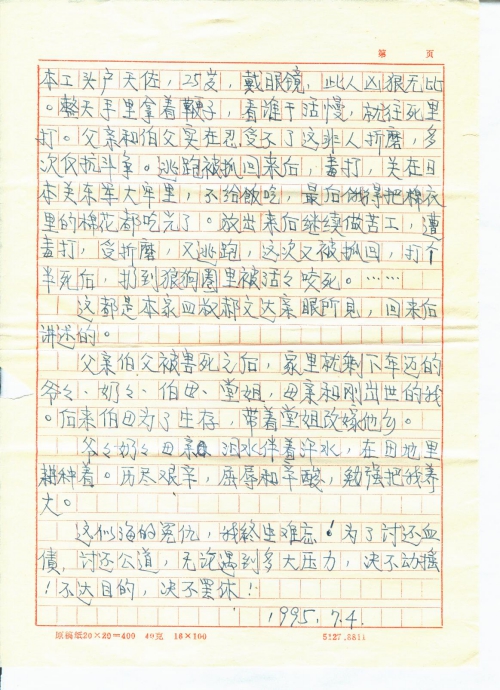 第 页
本工头户天佐，25岁，戴眼镜，此人凶狠无比
。整天手里拿着鞭子，看谁干活慢，就往死里
打。父亲和伯父实在忍受不了这非人折磨，多
次反抗斗争。逃跑被抓回来后，毒打，关在日
本关东军大牢里，不给飯吃，最后饿得把棉衣
里的棉花都吃完了。放出来后继续做苦工，遭
毒打，受折磨，又逃跑，这次又被抓回，打个
半死后，扔到狼狗圈里被活々咬死。……
这都是本家四叔郝文达亲眼所見，回来后
讲述的。
父亲伯父被害死之后，家里就剩下年迈的
爷々、奶々、伯母、堂姐，母亲和刚出世的我
。后来伯母为了生存，带着堂姐改嫁他乡。
爷々奶々母亲 泪水伴着汗水，在田地里
耕种着。历尽艰辛，屈辱和辛酸，勉强把我养
大。
这似海的冤仇，我终生难忘！为了讨还血
債，讨还公道，无论遇到多大压力，决不动摇
！不达目的，决不罢休！
1995.7.4.
原稿紙20×20=400 40克 16×100 5127.8811